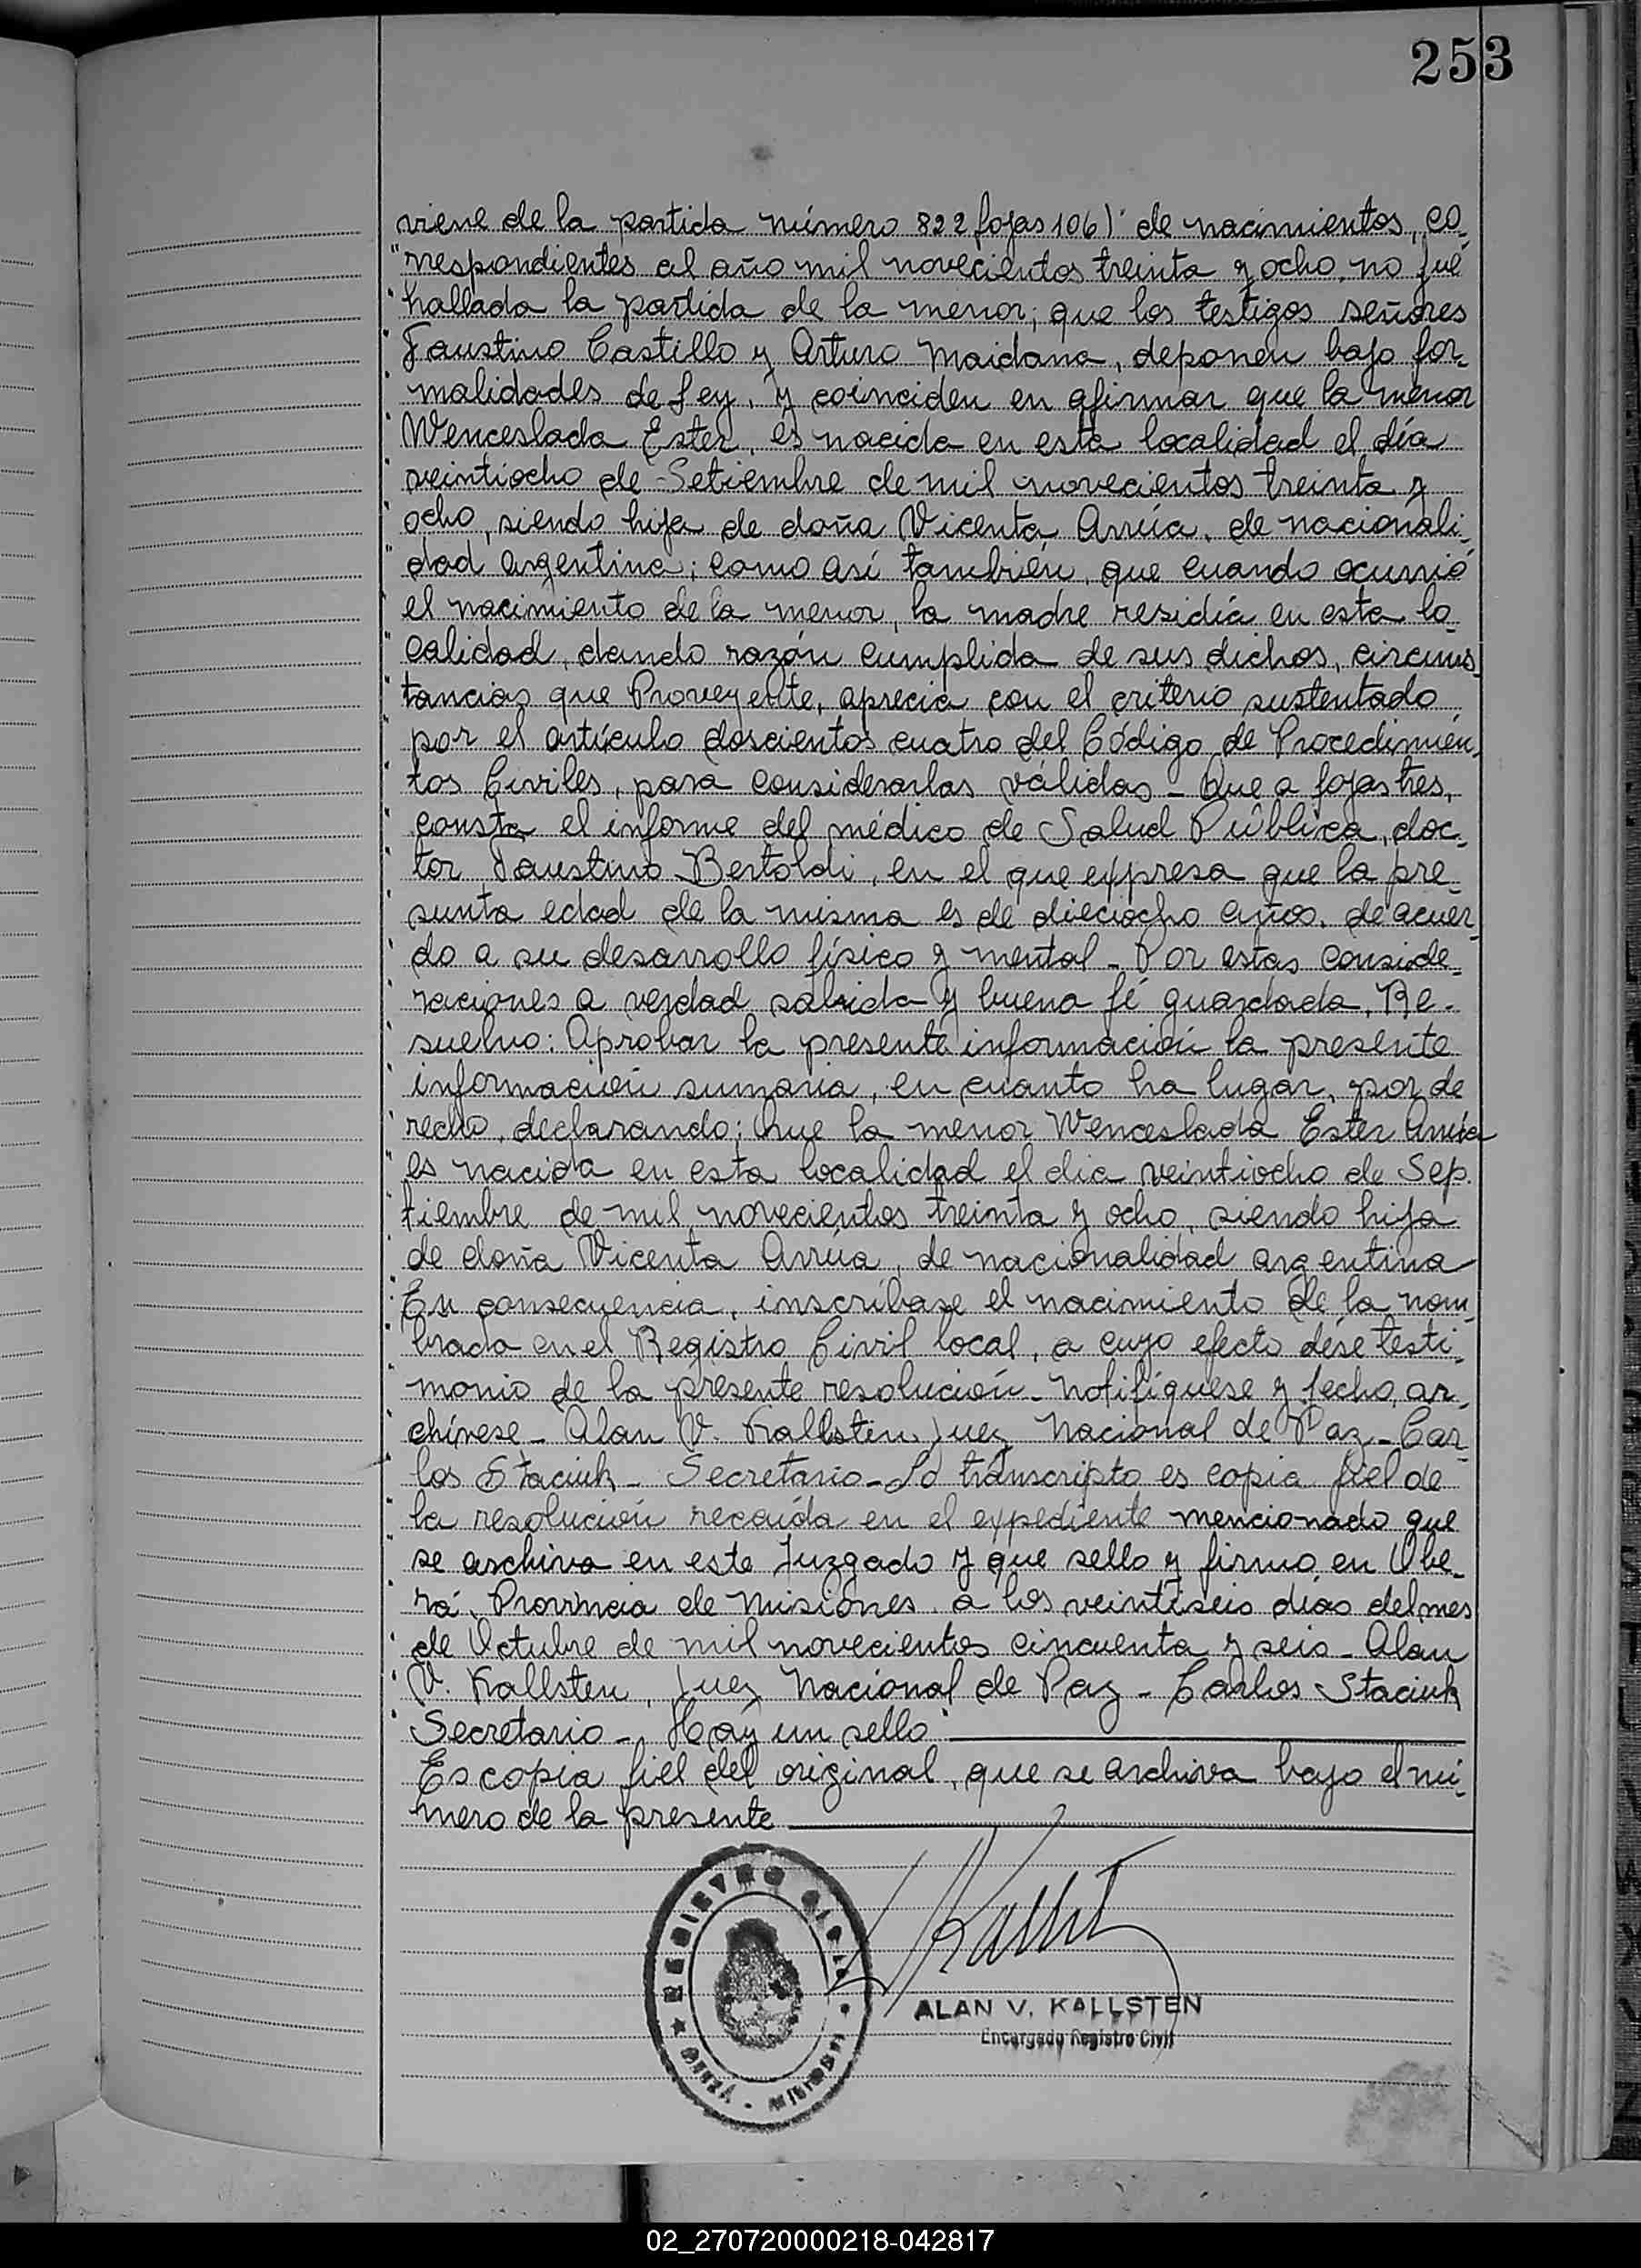 253
viene de la partida número 822 fojas 106) de nacimientos, co-
"rrespondientes al año mil novecientos treinta y ocho, no fué
"hallada la partida de la menor; que los testigos señores
"Faustino Castillo y Arturo Maidana, deponen bajo for-
"malidades de Ley, y coinciden en afirmar que la menor
"Wenceslada Ester, es nacida en esta localidad el día
"veintiocho de Setiembre de mil novecientos treinta y
"ocho, siendo hija de doña Vicenta Arrúa, de nacionali-
"dad argentina; como así también, que cuando ocurrió
"el nacimiento de la menor, la madre residía en esta lo-
"calidad, dando razón cumplida de sus dichos, circuns-
"tancias que Proveyente, aprecia con el criterio sustentado
"por el artículo doscientos cuatro del Código de Procedimien-
"tos Civiles, para considerarlas válidas - Que a fojas tres,
"consta el informe del médico de Salud Pública, doc-
"tor Faustino Bertoldi, en el que expresa que la pre-
"sunta edad de la misma es de dieciocho años, de acuer-
"do a su desarrollo físico y mental - Por estas conside-
"raciones a verdad sabida y buena fé guardada, Re-
"suelvo: Aprobar la presente información la presente
"información sumaria, en cuanto ha lugar, por de
"recho, declarando: Que la menor Wenceslada Ester Arrúa
"es nacida en esta localidad el dia veintiocho de Sep-
"tiembre de mil novecientos treinta y ocho, siendo hija
"de doña Vicenta Arrúa, de nacionalidad argentina
"En consecuencia, inscríbase el nacimiento de la nom-
"brada en el Registro Civil local, a cuyo efecto dése testi-
"monio de la presente resolución - Notifíquese y fecho, ar-
"chívese - Alan V. Kallsten, Juez Nacional de Paz - Car-
"los Staciuk - Secretario - Lo transcripto es copia fiel de
"la resolución recaída en el expediente mencionado que
"se archiva en este Juzgado y que sello y firmo en Obe-
"rá, Provincia de Misiones, a los veintiseis días del mes
"de Octubre de mil novecientos cincuenta y seis - Alan
"V. Kallsten, Juez Nacional de Paz - Carlos Staciuk
"Secretario - Hay un sello"
Es copia fiel del original, que se archiva bajo el nú-
mero de la presente
REGISTRO CIVIL
OBERÁ - MISIONES
ALAN V. KALLSTEN
Encargado Registro Civil
02_270720000218-042817